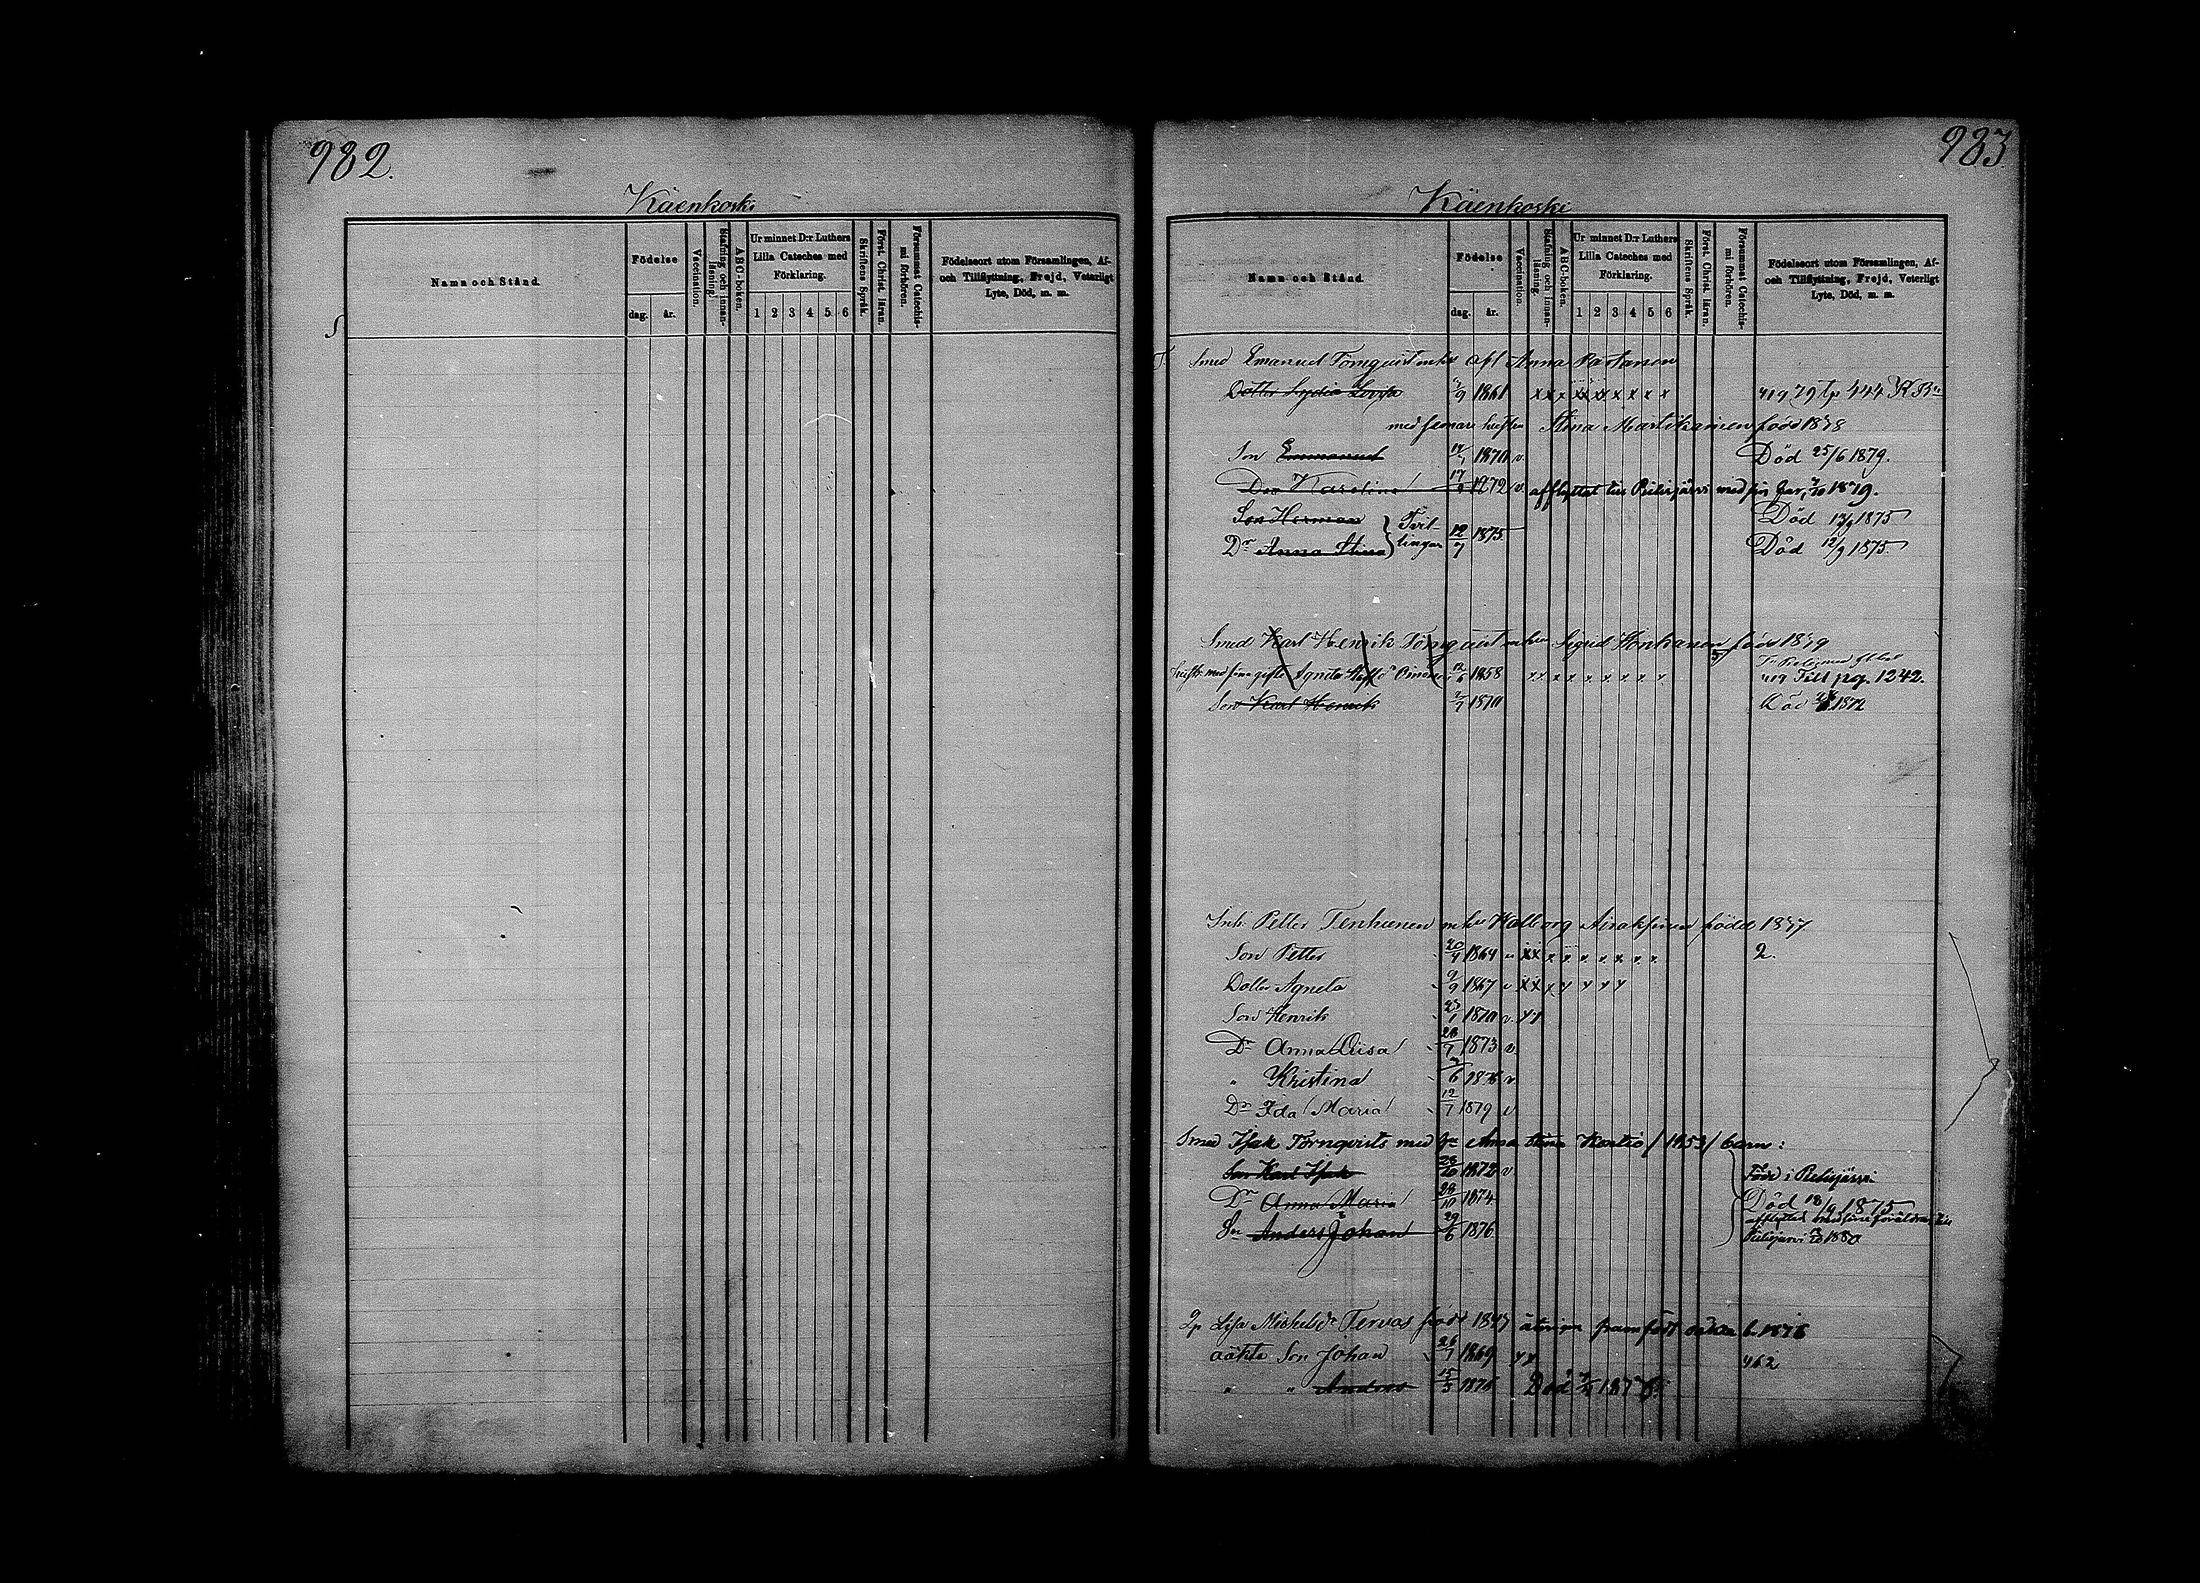 982.
Käenkoski
Namn och Stånd.
Födelse
dag. år.
Vaccination.
Stafning och innan-läsning.
ABC-boken.
Ur minnet D:r Luthers
Lilla Cateches med
Förklaring.
1 2 3 4 5 6
Skriftens Språk.
Först. Christ. läran.
Försummat Catechis-mi förhören.
Födelseort utom Församlingen, Af-
och Tillflyttning, Frejd, Veterligt
Lyte, Död, m. m.
983
Käenkoski
Namn och Stånd.
Födelse
dag. år.
Vaccination.
Stafning och innan-läsning.
ABC-boken.
Ur minnet D:r Luthers
Lilla Cateches med
Förklaring.
1 2 3 4 5 6
Skriftens Språk.
Först. Christ. läran.
Försummat Catechis-mi förhören.
Födelseort utom Församlingen, Af-
och Tillflyttning, Frejd, Veterligt
Lyte, Död, m. m.
Smed Emanuel Törnqvist afl Anna Partanen
Dotter Lydia Lovisa 1861 x x x x x x x x x 79 444
med senare hustrun Stina Martikainen född
Son Emmanuel 1870 v. Död 25/6 1879.
Dr Karolina 17 1872 v. afflyttat till Pielisjärvi med sin far, 1879.
Son Herman } Tvil- Död 1875
Dr Anna Stina } lingar 12/7 1875 Död 12/9 1875.
Smed Karl Henrik Törnqvist Sigrid född
Agneta 12/6 1858 x x x x x x x x pg. 1242.
Son Karl Henrik 2/7 1870 Död 1872
Inh. Petter Tenhunen Walborg Airaksinen född
Son Petter 20/4 1864 x x x x x x x x 2.
Dotter Agneta 9/9 1867 v x x x y y y y
Son Henrik 1870 v. y y
Dr Anna Lisa 7 1873 v.
" Kristina 6 1876 v
Dr Ida Maria 12/7 1879 v
Smed Isak Törnqvists med Anna Stina Kontio /1853/ barn:
Son Karl Isak 28/10 1872 v Född i Pielisjärvi
Dr Anna Maria 28/10 1874 Död 18/9 1875
Sn Anders Johan 29/6 1876 afflyttad med sina föräldrar till
Pielisjärvi 1880
Lisa Michelsdr Tervas född
oäkta Son Johan 26/7 1869 y y 462
" " Anders 15/3 1876 Död